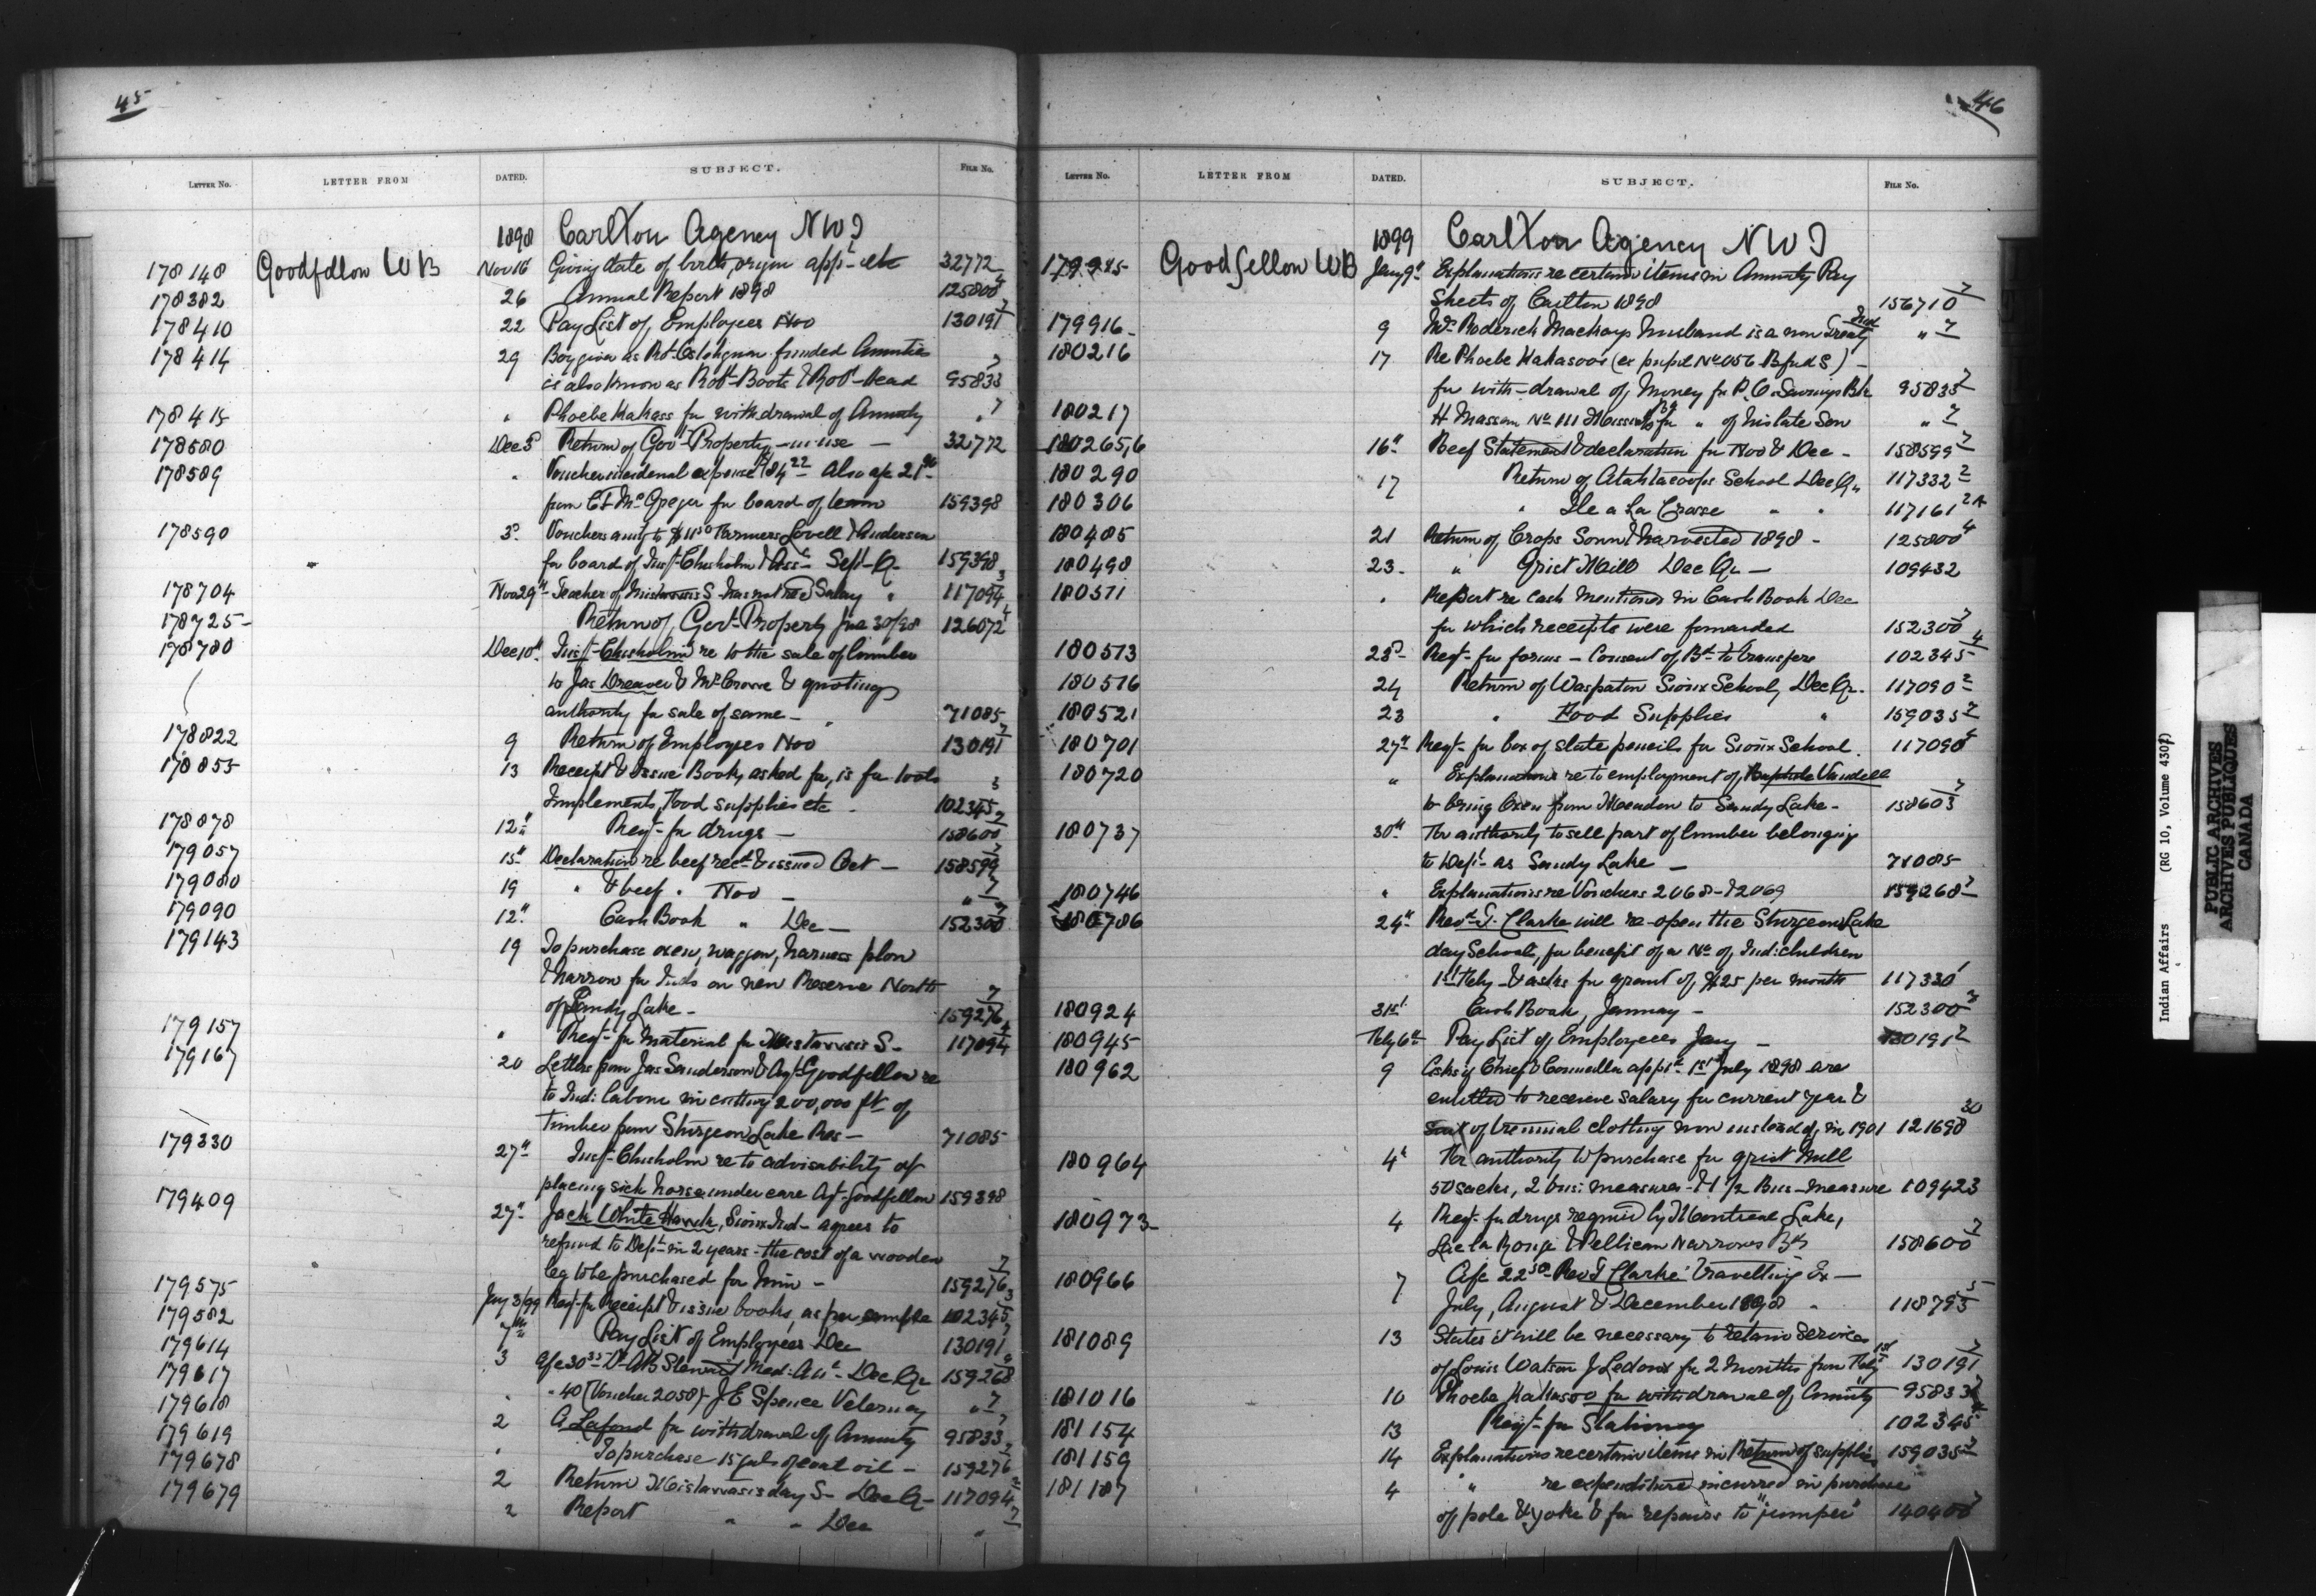 45
LETTER No. LETTER FROM DATED. SUBJECT. FILE No.
1898 Carlton Agency NWT
178148 Goodfellow WB Nov 16 Giving date of birth, origin appt etc 32772
178382 26 Annual Report 1898 125800 4
178410 22 Pay List of Employees Nov 130191 7
178414 29 Boy given as Robt funded Annuities
is also known as Robt Boots & Robt Head 95833 7
178415 " Phoebe Kahass for withdrawal of Annuity " 7
178580 Dec 5 Return of Gov't Property in use 32772
178589 " Voucher incidental expense 184 22 Also afc 21
from C F McGregor for board of team 159398
178590 3 Vouchers amtg to $11 50 Farmers Lovell & Anderson
for board of Insp Chisholm & Asst Sept Qr 159398
178704 Nov 29 Teacher of Mistawasis S has not recd Salary " 117094 3
178725 Return of Govt Property June 30/98 126072 4
178780 Dec 10 Insp Chisholm re to the sale of lumber
to Jas Dreaver & Mr Crowe & quoting
authority for sale of same 71085
178822 9 Return of Employees Nov 130191 7
178855 13 Receipt & Issue Book asked for, is for tools
Implements, Food supplies etc 102345 3
178878 12 Reqt for drugs 158600 7
179057 15 Declaration re beef recd & issued Oct 158599 7
179080 19 " & beef " Nov " 7
179090 12 Cash Book " Dec 152300 7
179143 19 To purchase oxen, waggon, harness plow
& harrow for Inds on new Reserve North
of Sandy Lake 159276 7
179157 " Reqt for material for Mistawasis S 117094 4
179167 20 Letters from Jas Sanderson & Agt Goodfellow re
to Ind: labour in cutting 200,000 ft of
timber from Sturgeon Lake Res 71085
179330 27 Insp Chisholm re to advisability of
placing sick horse under care Agt Goodfellow 159398
179409 27 Jack White Hawk, Sioux Ind agrees to
refund to Dept in 2 years the cost of a wooden
leg to be purchased for him 159276 7
179575 Jany 3/99 Reqt for Receipt & issue books, as per sample 102345 3
179582 7 Pay List of Employees Dec 130191 7
179614 3 Afc 30 Dr A B Stewart Med: Att Dec Qr 159268
179617 " " 40 (Voucher 2058) J E Spence Veterinary " 7
179618 2 A Lafond for withdrawal of Annuity 95833 7
179619 " To purchase 15 gals of coal oil 159276
179678 2 Return Mistawasis day S Dec Qr 117094
179679 2 Report " " Dec "
46
LETTER No. LETTER FROM DATED. SUBJECT. FILE No.
1899 Carlton Agency NWT
179985 Goodfellow WB Jany 9 Explanations re certain items in Annuity Pay
Sheets of Carlton 1898 156710 7
179916 9 Mrs Roderick Mackays husband is a non Treaty Ind " 7
180216 17 Re Phoebe Kahasoo (ex pupil No 056 Bfud S)
for with-drawal of money fr P.O. Savings Bk 95833 7
180217 H Massan No 111 for " of his late Son " 7
180265,6 16 Beef Statement & declaration for Nov & Dec 158599 7
180290 17 Return of Atahkacoops School Dec Qr 117332 2
180306 " Ile a La Crosse " " 117161 2A
180485 21 Return of Crops Sown & harvested 1898 125800 4
180498 23 " Grist Mill Dec Qr 109432
180511 " Report re cash mentioned in Cash Book Dec
for which receipts were forwarded 152300 7
180513 23 Reqt for forms Consent of Bd to transfers 102345 4
180516 24 Return of Waspaton Sioux School, Dec Qr 117090 2
180521 23 " Food Supplies " 159035 7
180701 27 Reqt for box of slate pencils for Sioux School 117090 4
180720 " Explanations re to employment of Baptiste Vandell
to bring Oxen from Meadow to Sandy Lake 158603 7
180737 30 For authority to sell part of lumber belonging
to Dept as Sandy Lake 71085
180746 " Explanations re Vouchers 2068 & 2069 159268 7
180786 24 Revd T. Clarke will re-open the Sturgeon Lake
day School, for benefit of a No of Ind: children
1st Feby & asks for grant of $25 per month 117330 1
180924 31st Cash Book, January 152300
180945 Feby 6 Pay List of Employees Jany 130191
180962 9 Asks if Chief & Councillor apptd 1st July 1898 are
entitled to receive salary for current year &
suit of triennial clothing now instead of in 1901 121698 30
180964 4 For authority to purchase for grist Mill
50 sacks, 2 bus: measures & 1 ½ Bus measure 109423
180973 4 Reqt for drugs required by Montreal Lake,
Lac la Ronge & Pellican Narrows Bds 158600 7
180966 7 Afc 22 50 Rev T Clarke travelling Ex
July, August & December 1898 " 118795 5
181089 13 States it will be necessary to retain services
of Louis Watson J Ledoux for 2 months from 1st Feby 130191 7
181016 10 Phoebe Kahasoo for withdrawal of Annuity 95833
181154 13 Reqt for Stationery 102345
181159 14 Explanations re certain items in Return of supplies 159035 7
181187 4 " re expenditure incurred in purchase
of pole & yoke & for repairs to "jumper" 140400 7
Indian Affairs (RG 10, Volume 4307)
PUBLIC ARCHIVES
ARCHIVES PUBLIQUES
CANADA